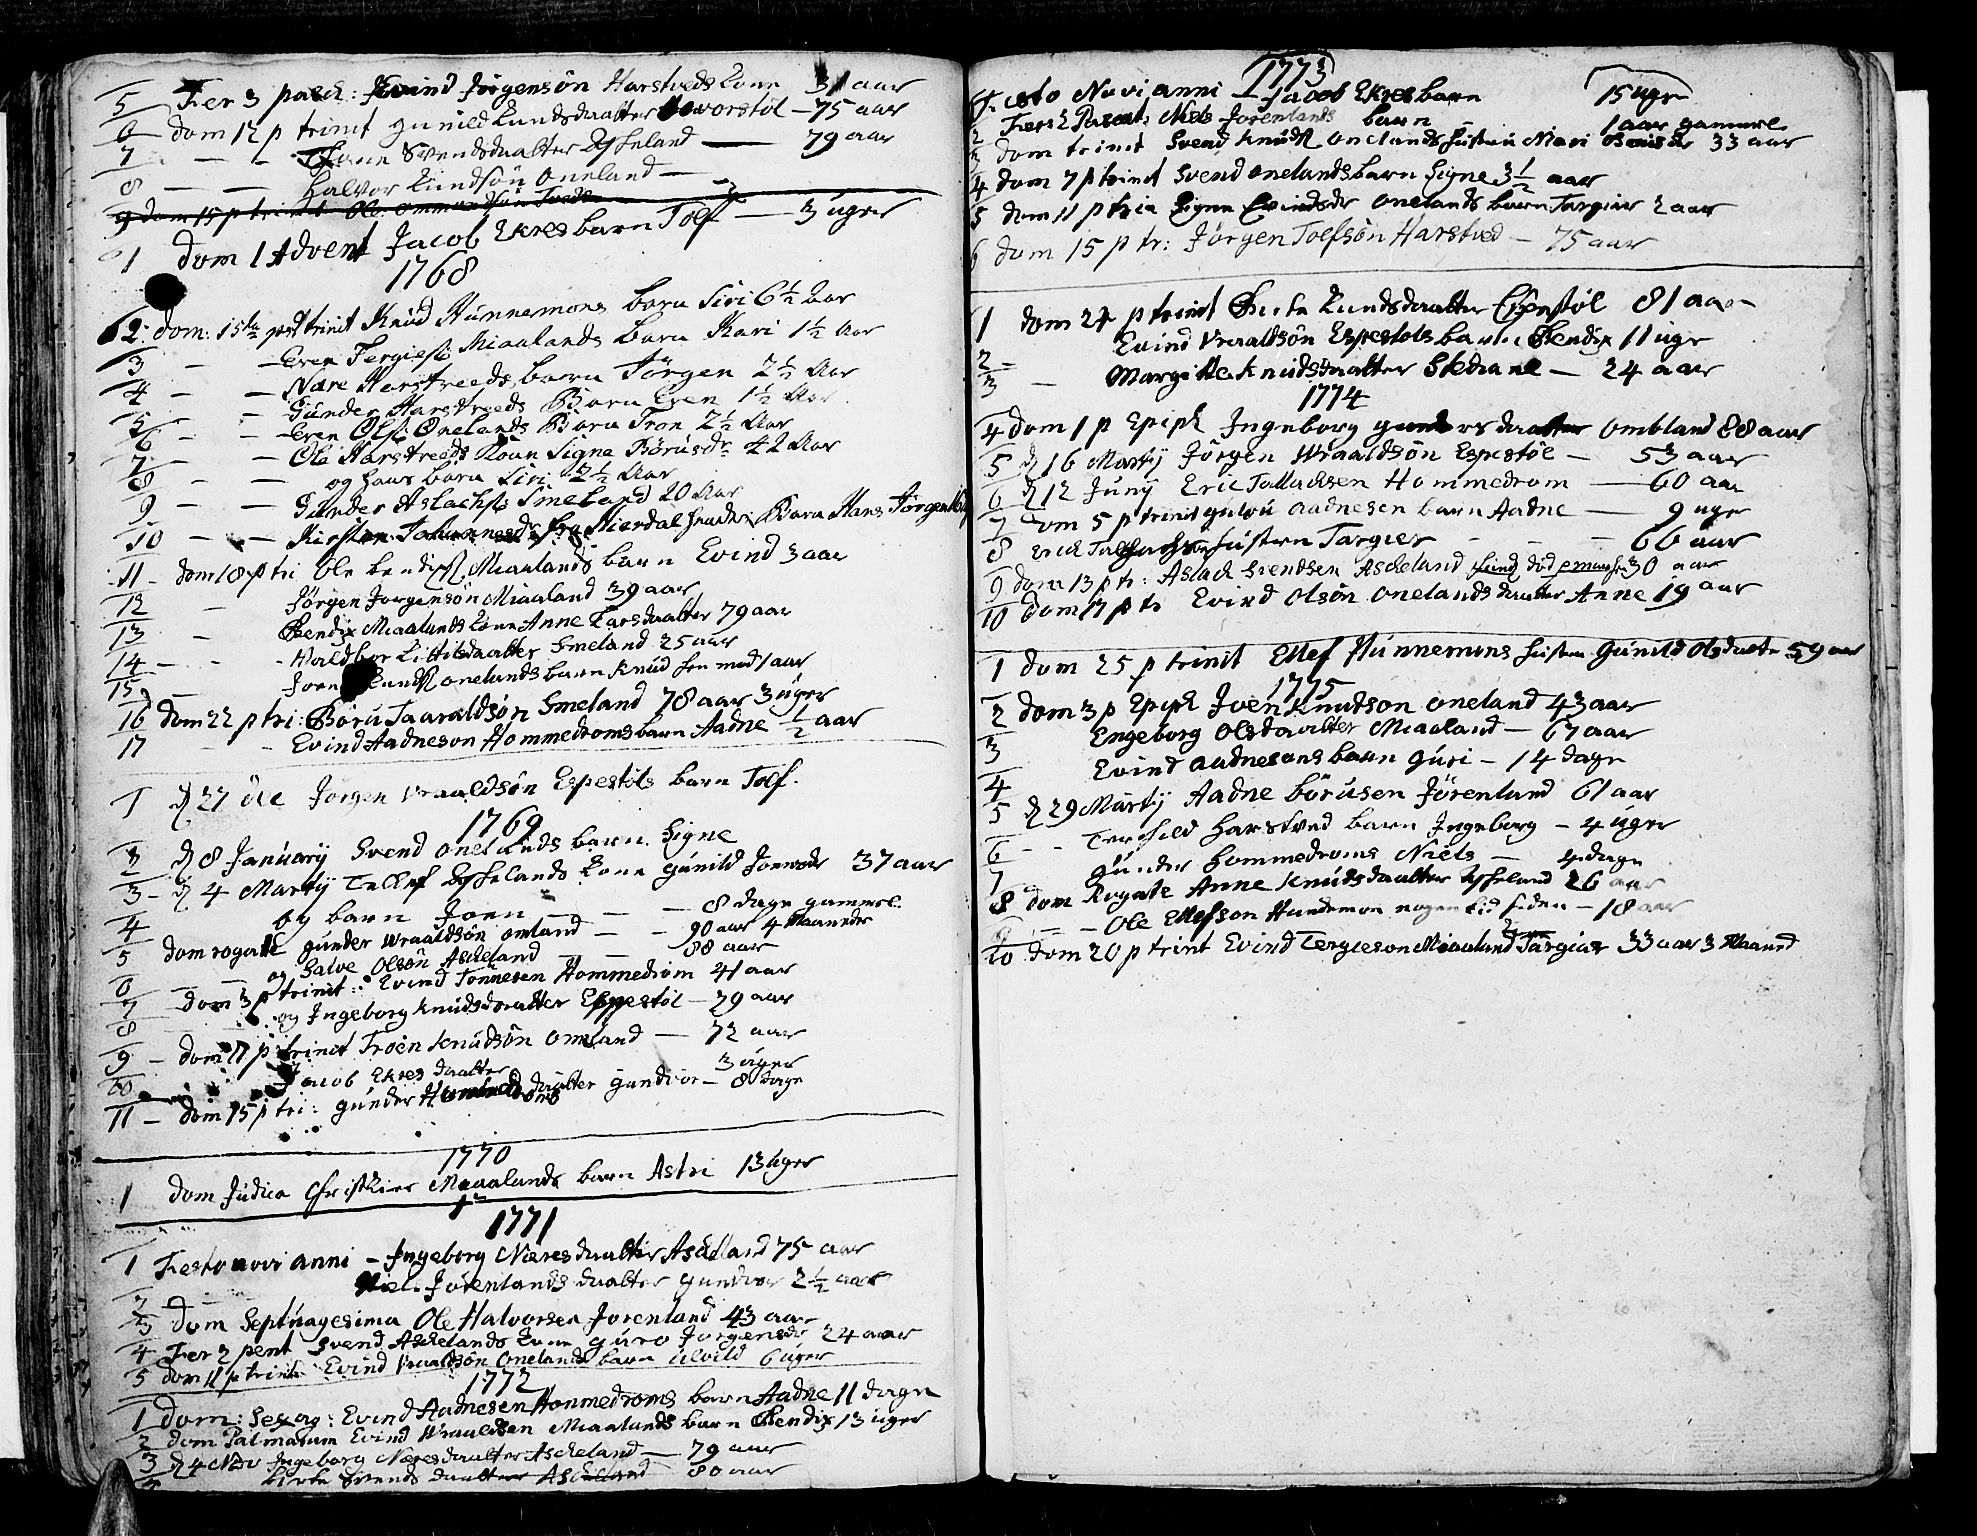 5 Fer 3 pasch: Evind Jørgensøn Harstveds kone 31 aar
6 dom 12 p trinit gunild Lundsdaatter Howorstøl – 75 aar
7 – – – Svendsdaatter Øysseland — 79 aar
8 – – Halvor Lundsøn Oneland —
9 dom 15 p trinit Ole
1 dom 1 Advent Jacob Ekres barn Tolf — 3 uger
1768
2. dom: 15de post trinit Knud Hunnemons barn Siri 6 1/2 Aar
3 – – Even Tergiess Miaalands barn Kari 1 1/2 Aar
4 – – Nære Harstveeds barn Jörgen 2 1/2 Aar
5 – – Gunder Harstveeds Barn Even 1 1/2 Aar.
6 – – Even Olss Onelands Barn Tron 2 1/2 Aar
7 – – Ole Harstveeds Koun Signe Börusdr 42 Aar
8 – – og hans barn Siri 2 1/2 Aar
9 – – Gunder Aslachss Smeland 20 Aar
10 – – Kirsten Johannesdr fra Hierdal hendes Barn Hans Jørgen
11 – dom 18 p tri Ole bendixss Miaalands barn Evind 3 aar
12 – Jörgen Jorgensøn Miaaland 39 aar
13 – Bendix Miaalands kone Anne Larsdaatter 79 aar
14 – – – Valdbor Kittilsdaatter Smeland 25 aar
15 – Joen onelands barn Knud 1 aar
16 dom 22 p tri: Böru Taaraldsøn Smeland 78 aar 3 uger
17 – – Evind Aadneson Hommedroms barn Aadne 1/2 aar
1 d 27 dec Jörgen Vraaldsøn Espestøls barn Tolf.
1769
2 d 8 January Svend onelands barn Signe
3 – d 4 Martÿ Tellef Øysselands kone gunild 37 aar
4 og barn Joen – – – 8 dage gammel.
5 dom rogate gunder Wraaldsøn omland – – 90 aar 4 Maaneder
6 – – og Salve Olsøn Ascheland – – 88 aar
7 dom 3 p trinit: Evind Tønnesen Hommedrom 41 aar
8 – – og Ingeborg Knudsdaatter Espestøl – 29 aar
9 – dom 11 p trinit Troen Knudsøn omland — 72 aar
10 Jacob Ekres daatter 3 uger
11 – dom 15 p tri: gunder daatter gundvor – 8 dage
1770
1 dom Judica Miaalands barn Astri 13 uger
1771
1 Festo novi anni – Ingeborg Næresdaatter Ascheland 75 aar
2 – Niel Jørenlands daatter gundvor 2 1/2 aar
3 dom Septuagesima Ole Halvorsen Jorenland 43 aar
4 Fer 2 pent Svend Aschelands kone guro Jorgensdr 24 aar
5 dom 11 p trinit Evind Vraaldsøn Onelands barn 6 uger
1772
1 dom: Sexag: Evind Aadnesen Hommedroms barn Aadne 11 dage
2 dom Palmarum Evind Wraaldsen Miaalands barn Bendix 13 uger
3 d 4 Nov Ingeborg Næresdaatter Ascheland — 79 aar
4 birte Svends daatter Ascheland 80 aar
1773
Festo Novi anni Jacob Ekres barn 15 uger
2 Fer 2 Pascat: Niels Jorenlands barn 1 aar gammel
3 dom trinit Svend Knuds onelands hustru Mari 33 aar
4 dom 7 p trinit Svend onelands barn Signe 3 1/2 aar
5 dom 11 p trin Signe Evindsdr onelands barn Targier 2 aar
6 dom 15 p tr: Jörgen Tolfsön Harstved – 75 aar
1 dom 24 p trinit Birte Lundsdaatter 81 aar
2 – Evind Vraaldsön Espestols barn Bendix 11 uger
3 – Margitte Knudsdaatter Skeraae — 24 aar
1774
4 dom 1 p Epiph Ingeborg gundersdaatter Ombland 88 aar
5 d 16 Martÿ Jörgen Wraaldsön Espestöl – 53 aar
6 d 12 Junÿ Eric Tallachsen Hommedrom — 60 aar
7 dom 5 p trinit Aadnesen barn Aadne — 9 uger
8 Erich Tallachsen hustru Targier – – – 66 aar
9 dom 13 p tr: Aslach Svendsen Ascheland 30 aar
10 dom 17 p tr Evind Olsøn onelands daatter Anne 19 aar
1 dom 25 p trinit Ellef Hunnemons hustru gunild Olsdaatter 59 aar
1775
2 dom 3 p Epiph Joen Knudson oneland 43 aar
3 Engeborg Olsdaatter Miaaland – 67 aar
4 Evind aadnesons barn guri – 14 dage
5 d 29 Martÿ Aadne börusen Jörenland 61 aar
6 – – harstved barn Ingeborg – 4 uger
7 gunder hommedroms Niels – 4 dage
8 dom Rogate Anne Knudsdaatter Øysseland 26 aar
9 – – Ole Ellefson Hundemon nogen tid siden – 18 aar
10 dom 20 p trint Evind Tergieson Miaaland Targier 33 aar 3 Maaned